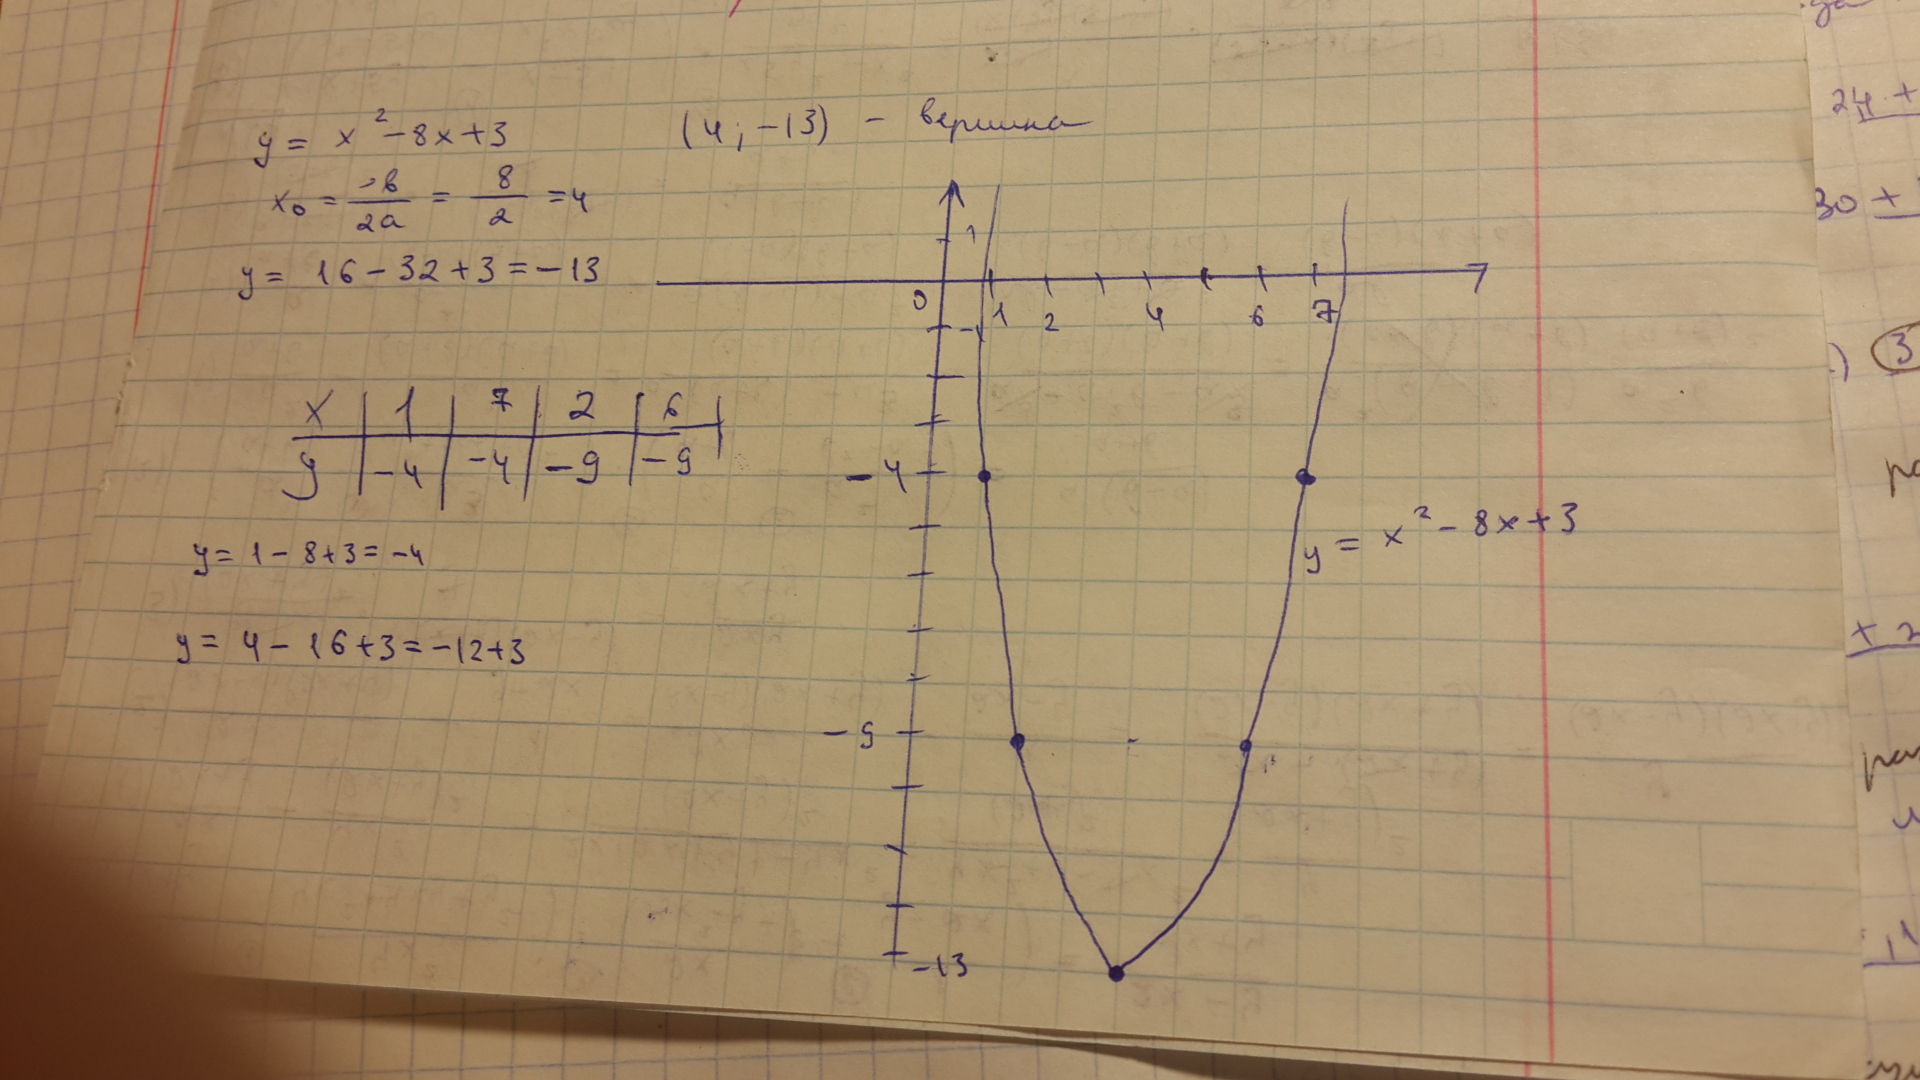 y = x² - 8x + 3
x₀ = -b/2a = 8/2 = 4
y = 16 - 32 + 3 = -13
x | 1 | 7 | 2 | 6
y | -4 | -4 | -9 | -9
y = 1 - 8 + 3 = -4
y = 4 - 16 + 3 = -12 + 3
(4; -13) - вершина
1
0 1 2 4 6 7
-1
-4
y = x² - 8x + 3
-9
-13
24 +
30 +
3
+ 2